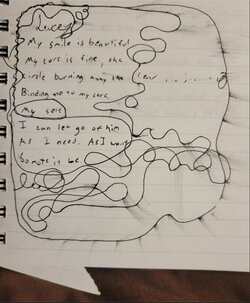 My smile is beautiful
My core is fire, the
circle burning away the
Binding me to my core
My self
I can let go of him
As I need. As I want
So mote it be